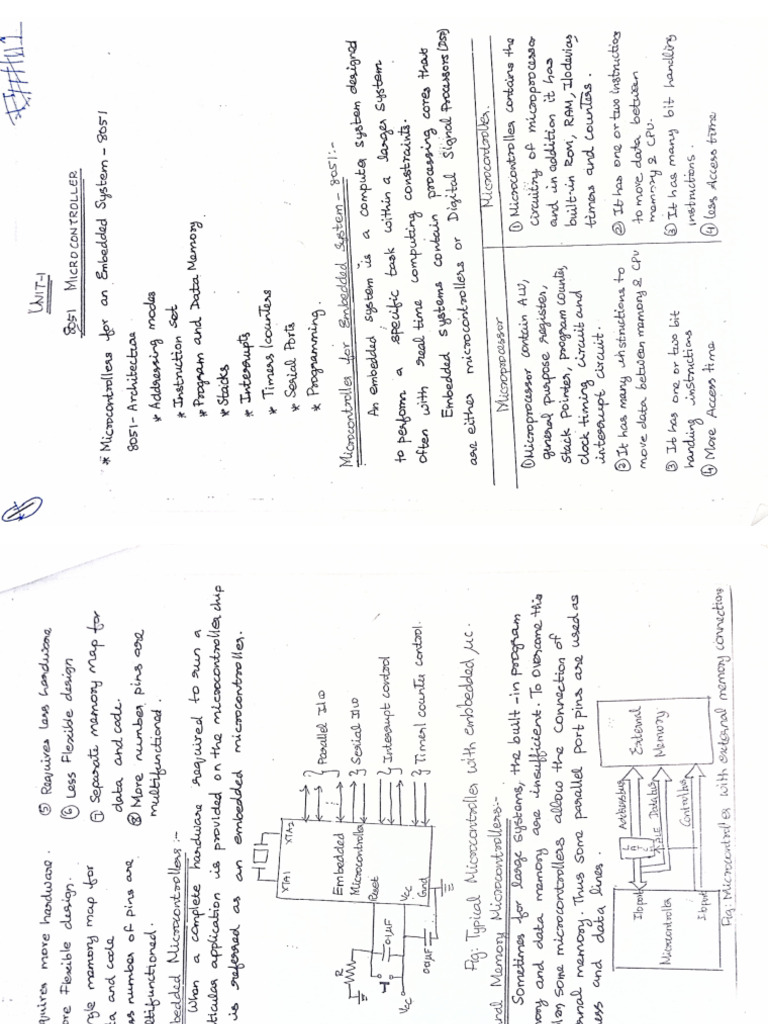 UNIT-1
8051 MICROCONTROLLER
* Microcontrollers for an Embedded System - 8051
8051- Architecture
* Addressing modes
* Instruction set
* Program and Data Memory
* Stacks
* Interrupts
* Timers/counters
* Serial Ports
* Programming.
Microcontroller for Embedded System - 8051:-
An embedded system is a computer system designed
to perform a specific task within a larger system
often with real time computing constraints.
Embedded systems contain processing cores that
are either microcontrollers or Digital Signal Processors (DSP)
Microprocessor
① Microprocessor contain ALU,
general purpose register,
stack Pointer, program counter,
clock timing circuit and
interrupt circuit.
② It has many instructions to
move data between memory & CPU
③ It has one or two bit
handling instructions
④ More Access time
Microcontroller.
① Microcontroller contains the
circuitry of microprocessor
and in addition it has
built-in ROM, RAM, I/o devices
timers and counters.
② It has one or two instruction
to move data between
memory & CPU.
③ It has many bit handling
instructions.
④ Less Access time
quires more hardware.
ore Flexible design.
gle memory map for
ta and code
ss number of pins are
ltifunctioned.
⑤ Requires less hardware
⑥ Less Flexible design
⑦ Separate memory map for
data and code.
⑧ More number pins are
multifunctioned.
bedded Microcontrollers:-
When a complete hardware required to run a
ticular application is provided on the microcontroller chip
is referred as an embedded microcontroller.
XTA1
XTA2
Embedded
Microcontroller
Reset
Vcc
Gnd
R
Vcc
Parallel I/o
Serial I/o
Interrupt control
Timer/counter control.
Fig: Typical Microcontroller with embedded µc.
nal Memory Microcontrollers:-
Sometimes for large systems, the built-in program
mory and data memory are insufficient. To overcome this
some microcontrollers allow the connection of
nal memory. Thus some parallel port pins are used as
ess and data lines.
I/o port
Microcontroller
I/o port
ALE
Databus
Controlbus
External
Memory
Fig: Microcontroller with external memory connection